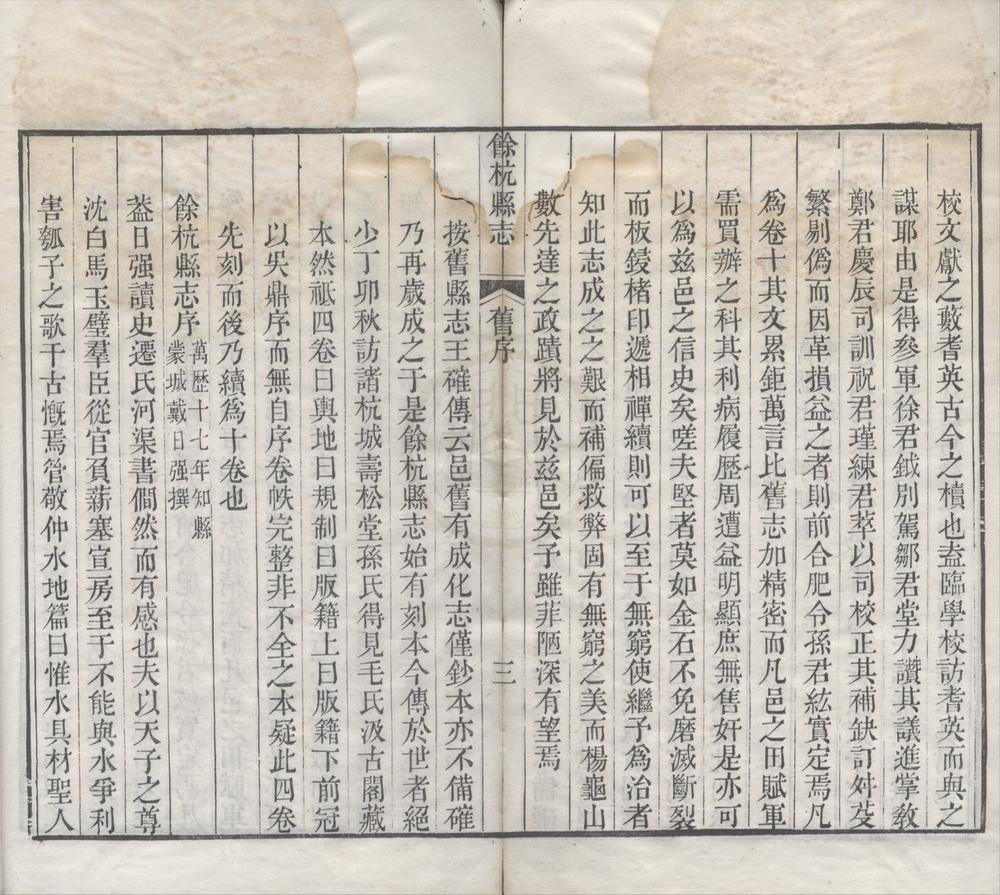 校文獻之藪耆英古今之櫝也盍臨學校訪耆英而與之
謀耶由是得參軍徐君鉞別駕鄒君堂力讚其議進掌教
鄭君慶辰司訓祝君瑾練君萃以司校正其補缺訂舛芟
繁剔僞而因革損益之者則前合肥令孫君紘實定焉凡
爲卷十其文累鉅萬言比舊志加精密而凡邑之田賦軍
需買辦之科其利病履歷周遭益明顯庶無售奸是亦可
以爲兹邑之信史矣嗟夫堅者莫如金石不免磨滅斷裂
而板鋟楮印遞相禪續則可以至于無窮使繼予爲治者
知此志成之之艱而補偏救弊固有無窮之美而楊龜山
數先達之政蹟將見於兹邑矣予雖菲陋深有望焉
餘杭縣志
舊序
三
按舊縣志王確傳云邑舊有成化志僅鈔本亦不備確
乃再歲成之于是餘杭縣志始有刻本今傳於世者絕
少丁卯秋訪諸杭城壽松堂孫氏得見毛氏汲古閣藏
本然祗四卷曰輿地曰規制曰版籍上曰版籍下前冠
以吳鼎序而無自序卷帙完整非不全之本疑此四卷
先刻而後乃續爲十卷也
餘杭縣志序
萬歷十七年知縣
蒙城戴日强撰
葢日强讀史遷氏河渠書僩然而有感也夫以天子之尊
沈白馬玉璧羣臣從官負薪塞宣房至于不能與水爭利
害瓠子之歌千古慨焉管敬仲水地篇曰惟水具材聖人